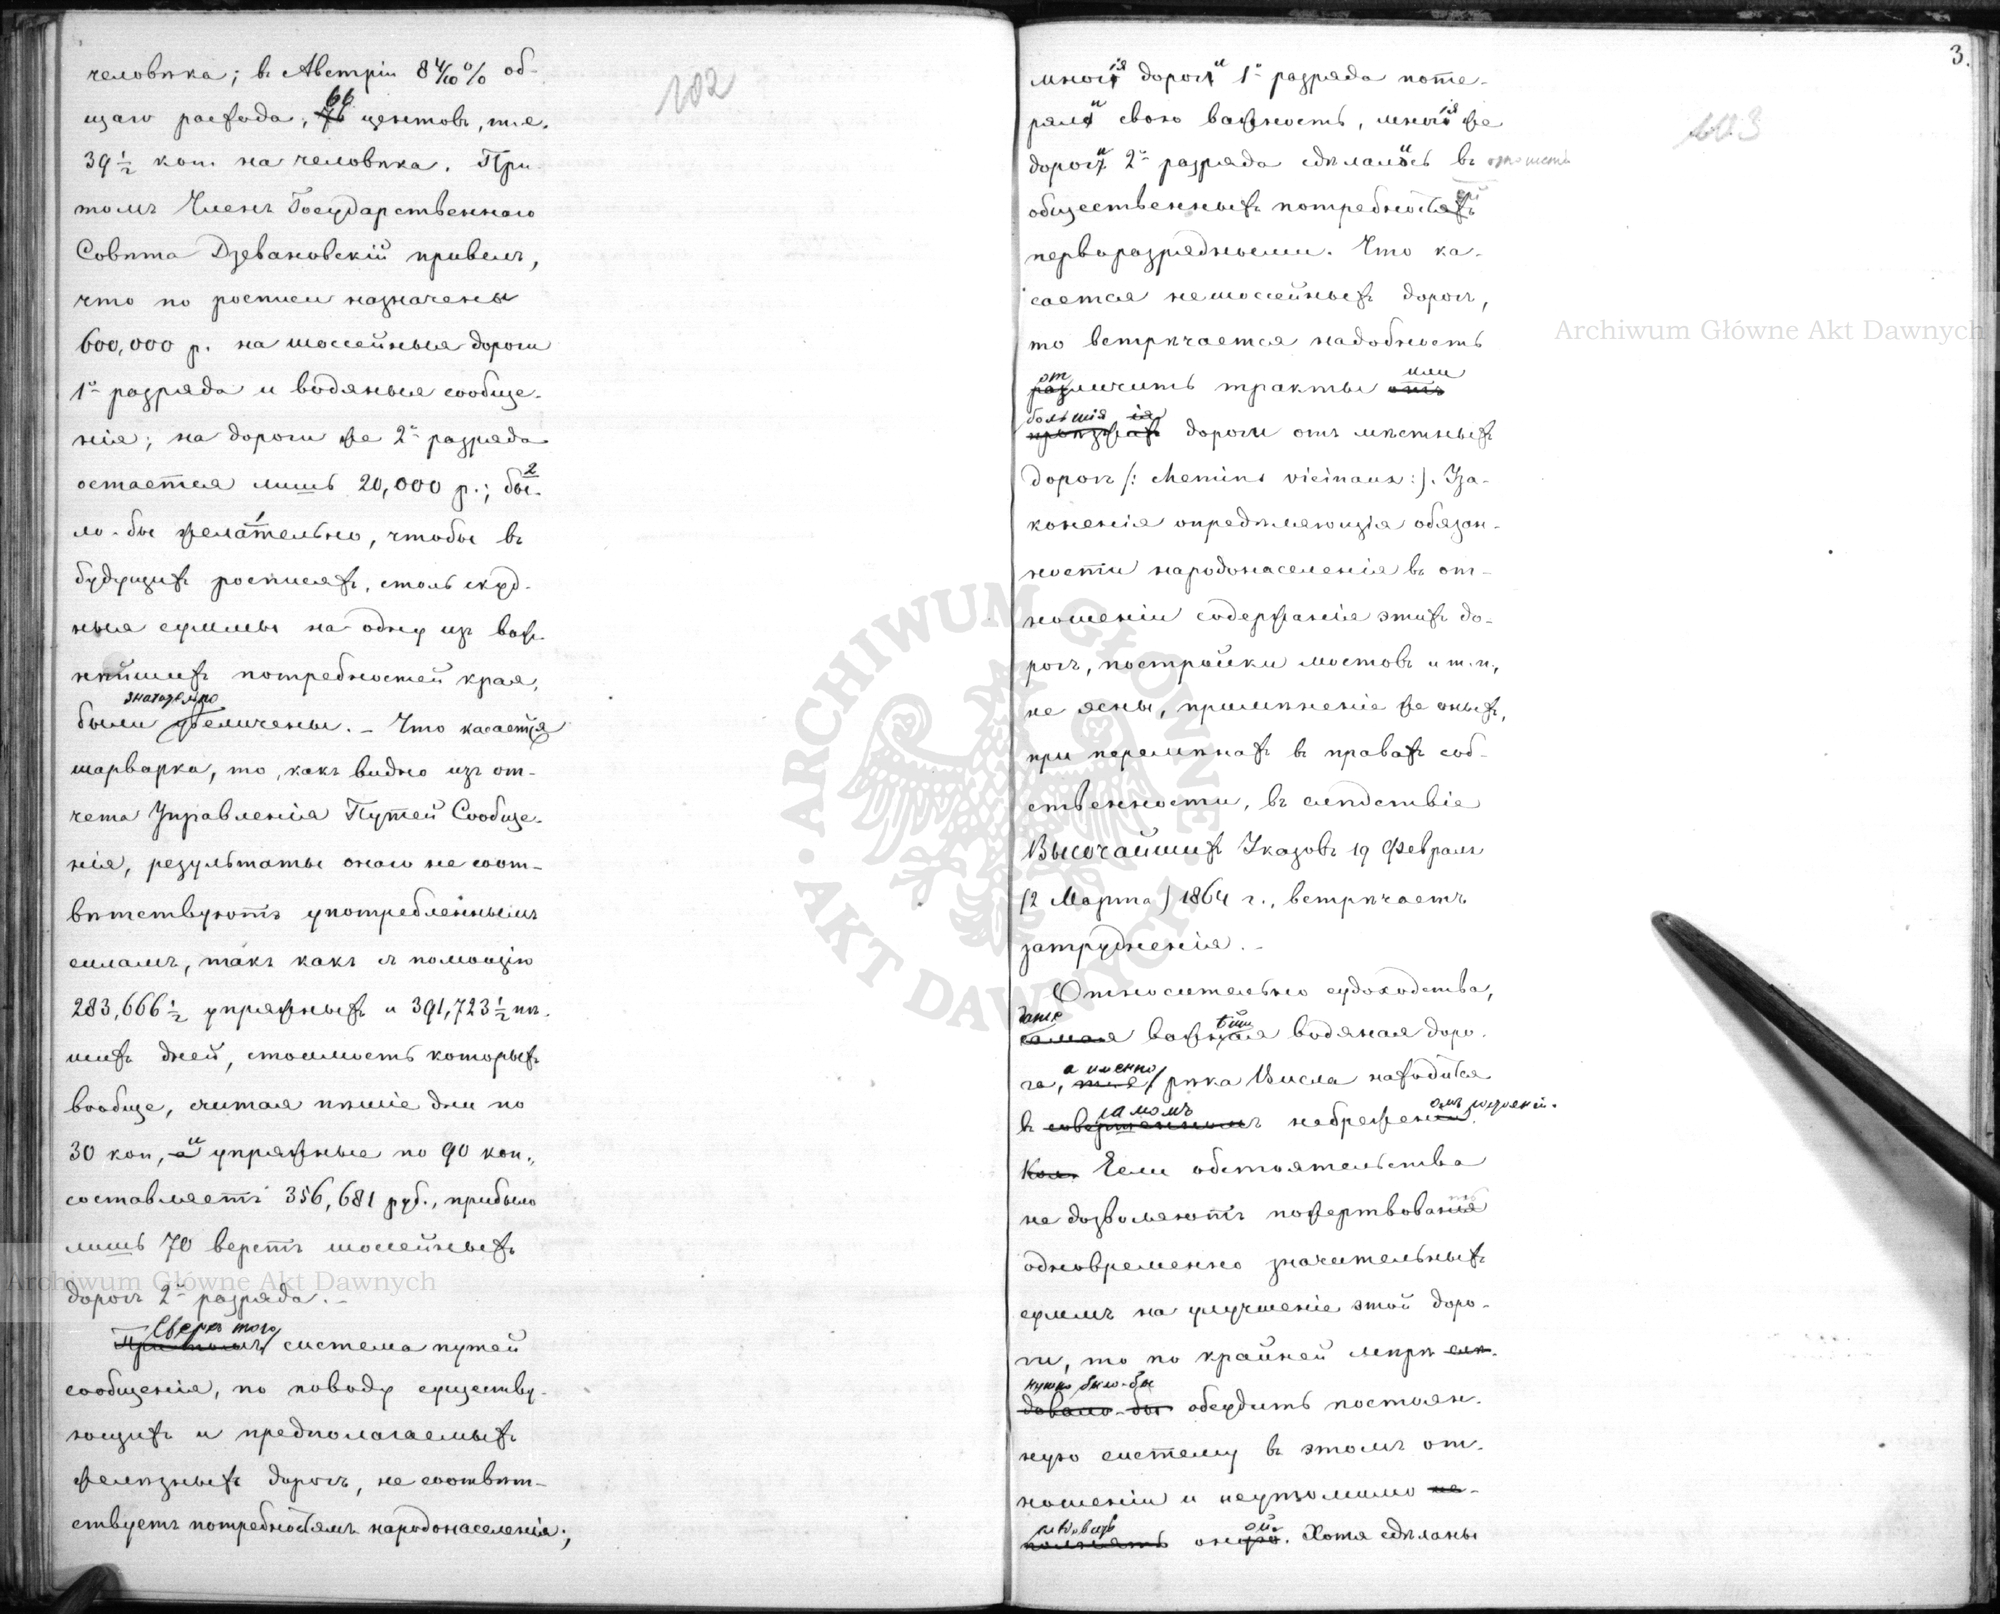 102
человѣка; въ Австріи 8 4/10 % об-
щаго расхода, 66 центовъ, т. е.
39 1/2 коп. на человѣка. При
томъ Членъ Государственнаго
Совѣта Дзевановскій привелъ,
что по росписи назначены
600,000 р. на шоссейныя дороги
1го разряда и водяныя сообще-
нія; на дороги же 2го разряда
остается лишь 20,000 р.; бы-
ло-бы желательно, чтобы въ
будущихъ росписяхъ, столь скуд-
ныя суммы на одну изъ важ-
нѣйшихъ потребностей края,
значительно
были увеличены. – Что касается
шарварка, то, какъ видно изъ от-
чета Управленія Путей Сообще-
нія, результаты онаго не соот-
вѣтствуютъ употребленнымъ
силамъ, такъ какъ съ помощію
283,666 1/2 упряжныхъ и 391,723 1/2 пѣ-
шихъ дней, стоимость которыхъ
вообще, считая пѣшіе дни по
30 коп, и упряжные по 90 коп.,
составляетъ 356,681 руб., прибыло
лишь 70 верстъ шоссейныхъ
дорогъ 2го разряда. –
Сверхъ того
При томъ система путей
сообщенія, по поводу существу-
ющихъ и предполагаемыхъ
желѣзныхъ дорогъ, не соотвѣт-
ствуетъ потребностямъ народонаселенія;
3.
103
многія дороги 1го разряда поте-
ряли свою важность, многія же
дороги 2го разряда сдѣлались въ
общественныхъ потребностяхъ
перворазрядными. Что ка-
сается нешоссейныхъ дорогъ,
то встрѣчается надобность
от или
различить тракты отъ
большія ія
дороги отъ мѣстныхъ
дорогъ (: chemins vicinaux :). Уза-
коненія опредѣляющія обязан-
ности народонаселенія въ от-
ношеніи содержанія этихъ до-
рогъ, постройки мостовъ и т. п.,
не ясны, примѣненіе же оныхъ,
при перемѣнахъ въ правахъ соб-
ственности, въ слѣдствіе
Высочайшихъ Указовъ 19 Февраля
(2 Марта) 1864 г., встрѣчаетъ
затрудненія. –
Относительно судоходства,
даже
самая важнѣйшая водяная доро-
а именно
га, т. е. рѣка Висла находится
самомъ
въ совершенномъ небреженіи.
Если обстоятельства
не дозволяютъ пожертвованія
одновременно значительныхъ
суммъ на улучшеніе этой доро-
ги, то по крайней мѣрѣ слѣ-
нужно было-бы
довало-бы обсудить постоян-
ную систему въ этомъ от-
ношеніи и неутомимо
оной. Хотя сдѣланы
ARCHIWUM GŁÓWNE AKT DAWNYCH
Archiwum Główne Akt Dawnych
Archiwum Główne Akt Dawnych